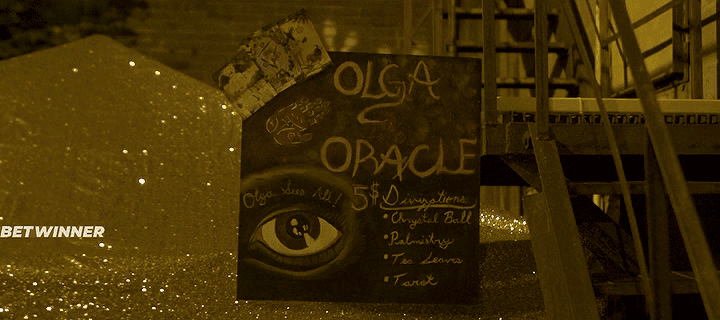 OLGA
ORACLE
Olga Sees All!
5$ Divinations
• Chrystal Ball
• Palmistry
• Tea Leaves
• Tarot
BETWINNER